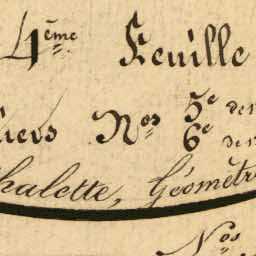 4ème Feuille
iers Nos 5e de
6e de
halette, Géomètr
Nos